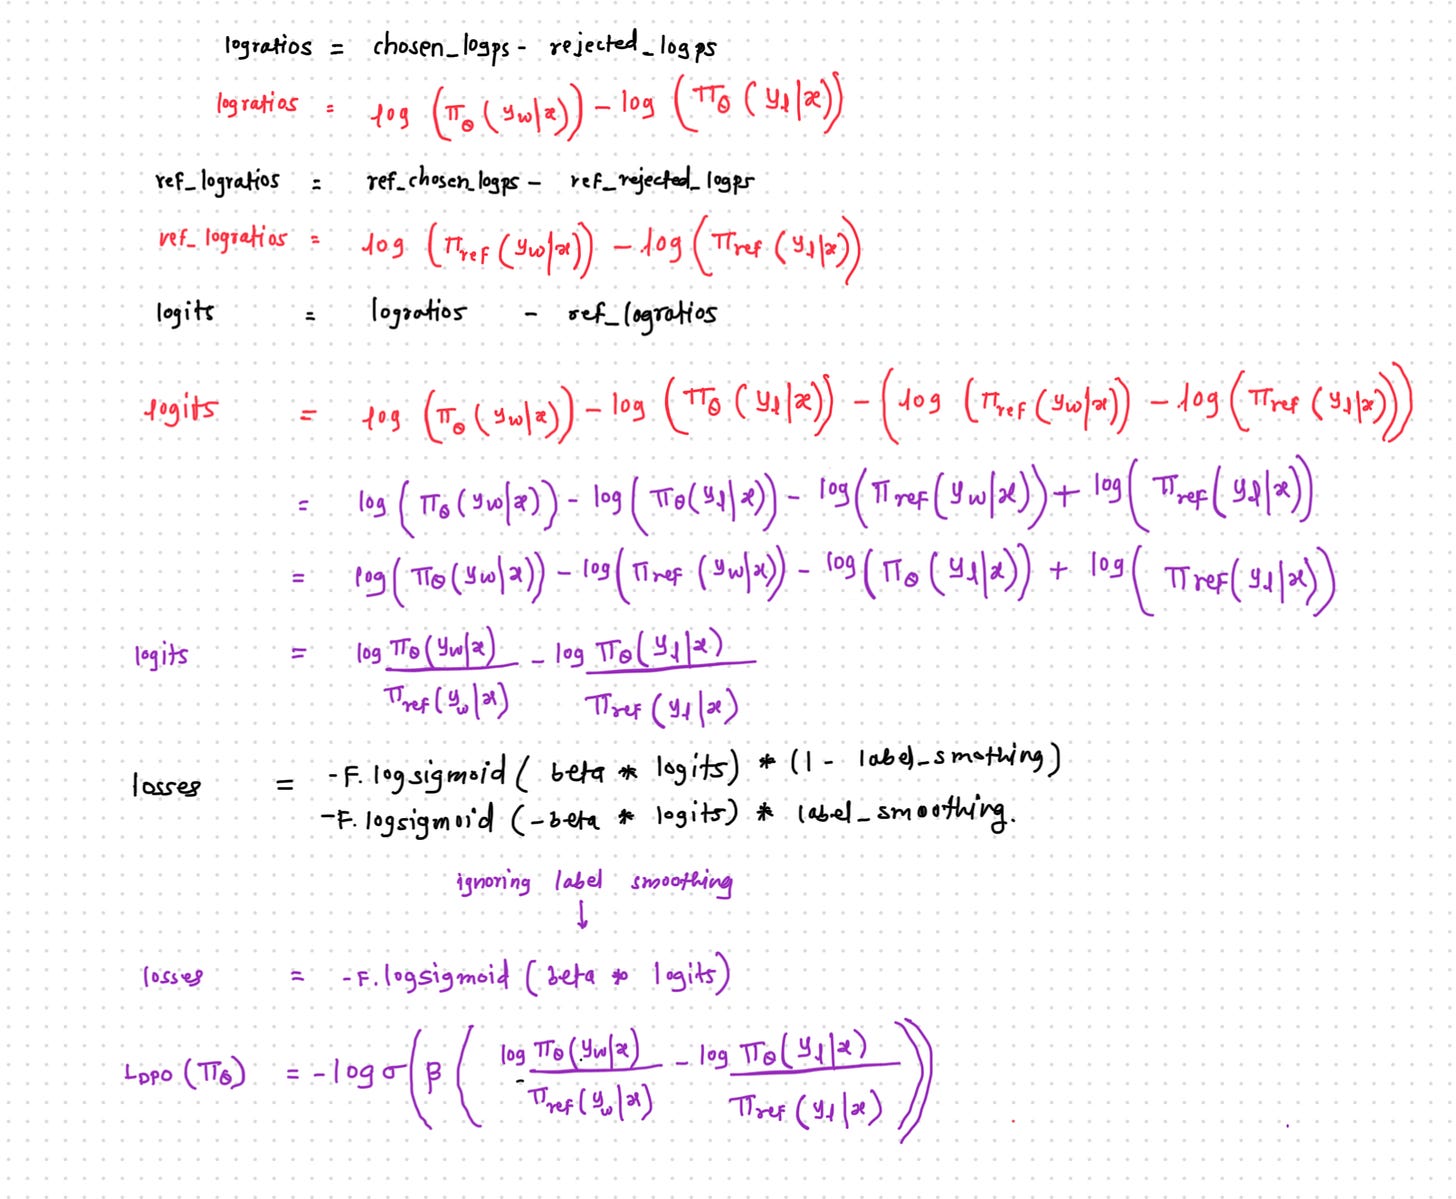 logratios = chosen_logps - rejected_logps
logratios = log (π_θ (y_w|x)) - log (π_θ (y_l|x))
ref_logratios = ref_chosen_logps - ref_rejected_logps
ref_logratios = log (π_ref (y_w|x)) - log (π_ref (y_l|x))
logits = logratios - ref_logratios
logits = log (π_θ (y_w|x)) - log (π_θ (y_l|x)) - (log (π_ref (y_w|x)) - log (π_ref (y_l|x)))
= log (π_θ (y_w|x)) - log (π_θ (y_l|x)) - log (π_ref (y_w|x)) + log (π_ref (y_l|x))
= log (π_θ (y_w|x)) - log (π_ref (y_w|x)) - log (π_θ (y_l|x)) + log (π_ref (y_l|x))
logits = log π_θ (y_w|x) / π_ref (y_w|x) - log π_θ (y_l|x) / π_ref (y_l|x)
losses = -F.logsigmoid ( beta * logits) * (1 - label_smothing)
-F.logsigmoid (-beta * logits) * label_smoothing.
ignoring label smoothing
↓
losses = -F.logsigmoid (beta * logits)
L_DPO (π_θ) = -log σ (β ( log π_θ (y_w|x) / π_ref (y_w|x) - log π_θ (y_l|x) / π_ref (y_l|x) ))